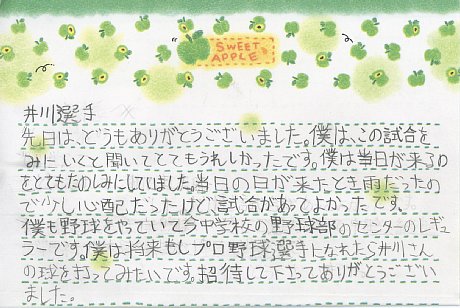 SWEET
APPLE
井川選手
先日は、どうもありがとうございました。僕は、この試合を
みにいくと聞いてとてもうれしかったです。僕は当日が来るの
をとてもたのしみにしていました。当日の日が来たとき雨だったの
で少し心配だったけど、試合があってよかったです。
僕も野球をやっていて今中学校の野球部のセンターのレギュ
ラーです。僕は将来もしプロ野球選手になれたら井川さん
の球を打ってみたいです。招待して下さってありがとうござい
ました。